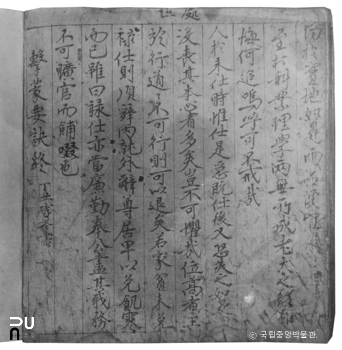 實地
至於科業理學兩無所成老大之後雖
悔何追嗚呼可不戒哉
人於未仕時惟仕是急旣仕後又恐失之如是汨
沒喪其本心者多矣豈不可懼哉位高者主
於行道不可行則可以退矣若家貧未免
祿仕則須辭內就外辭尊居卑以免飢寒
而已雖曰祿仕亦當廉勤奉公盡其職務
不可曠官而餔啜也
擊蒙要訣終
© 국립중앙박물관.